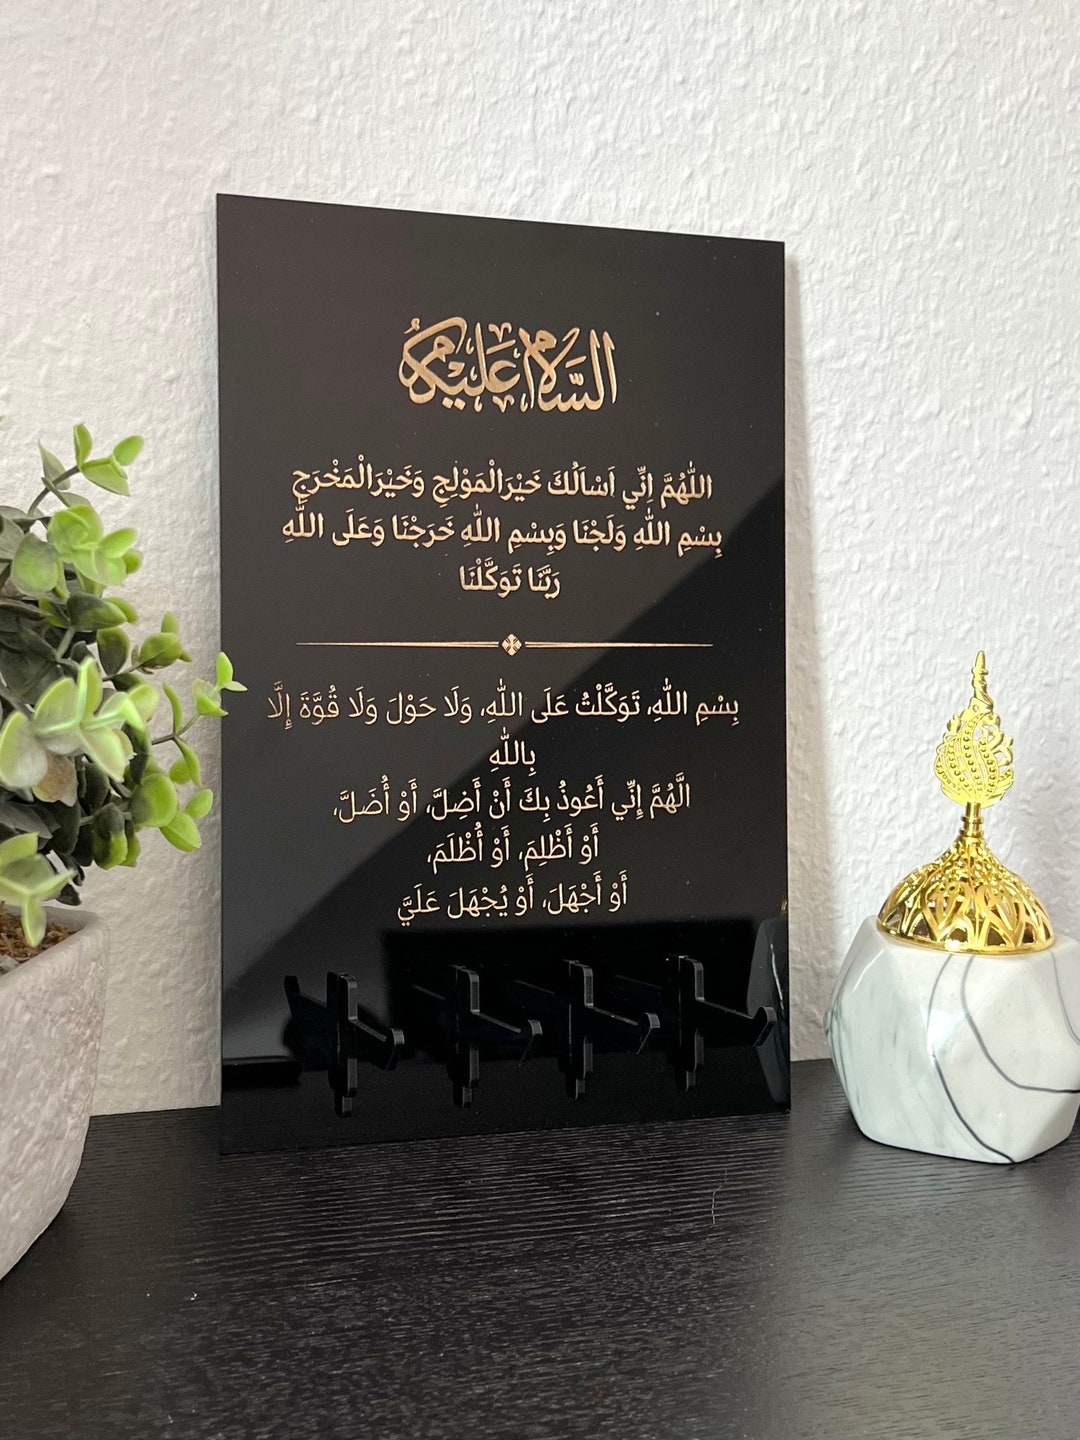 السَّلَامُ عَلَيْكُمُ
اللّٰهُمَّ اِنِّي اَسْاَلُكَ خَيْرَالْمَوْلِجِ وَخَيْرَالْمَخْرَجِ
بِسْمِ اللّٰهِ وَلَجْنَا وَبِسْمِ اللّٰهِ خَرَجْنَا وَعَلَى اللّٰهِ
رَبَّنَا تَوَكَّلْنَا
بِسْمِ اللّٰهِ، تَوَكَّلْتُ عَلَى اللّٰهِ، وَلَا حَوْلَ وَلَا قُوَّةَ إِلَّا
بِاللّٰهِ
الَّهُمَّ إِنِّي أَعُوذُ بِكَ أَنْ أَضِلَّ، أَوْ أُضَلَّ،
أَوْ أَظْلِمَ، أَوْ أُظْلَمَ،
أَوْ أَجْهَلَ، أَوْ يُجْهَلَ عَلَيَّ